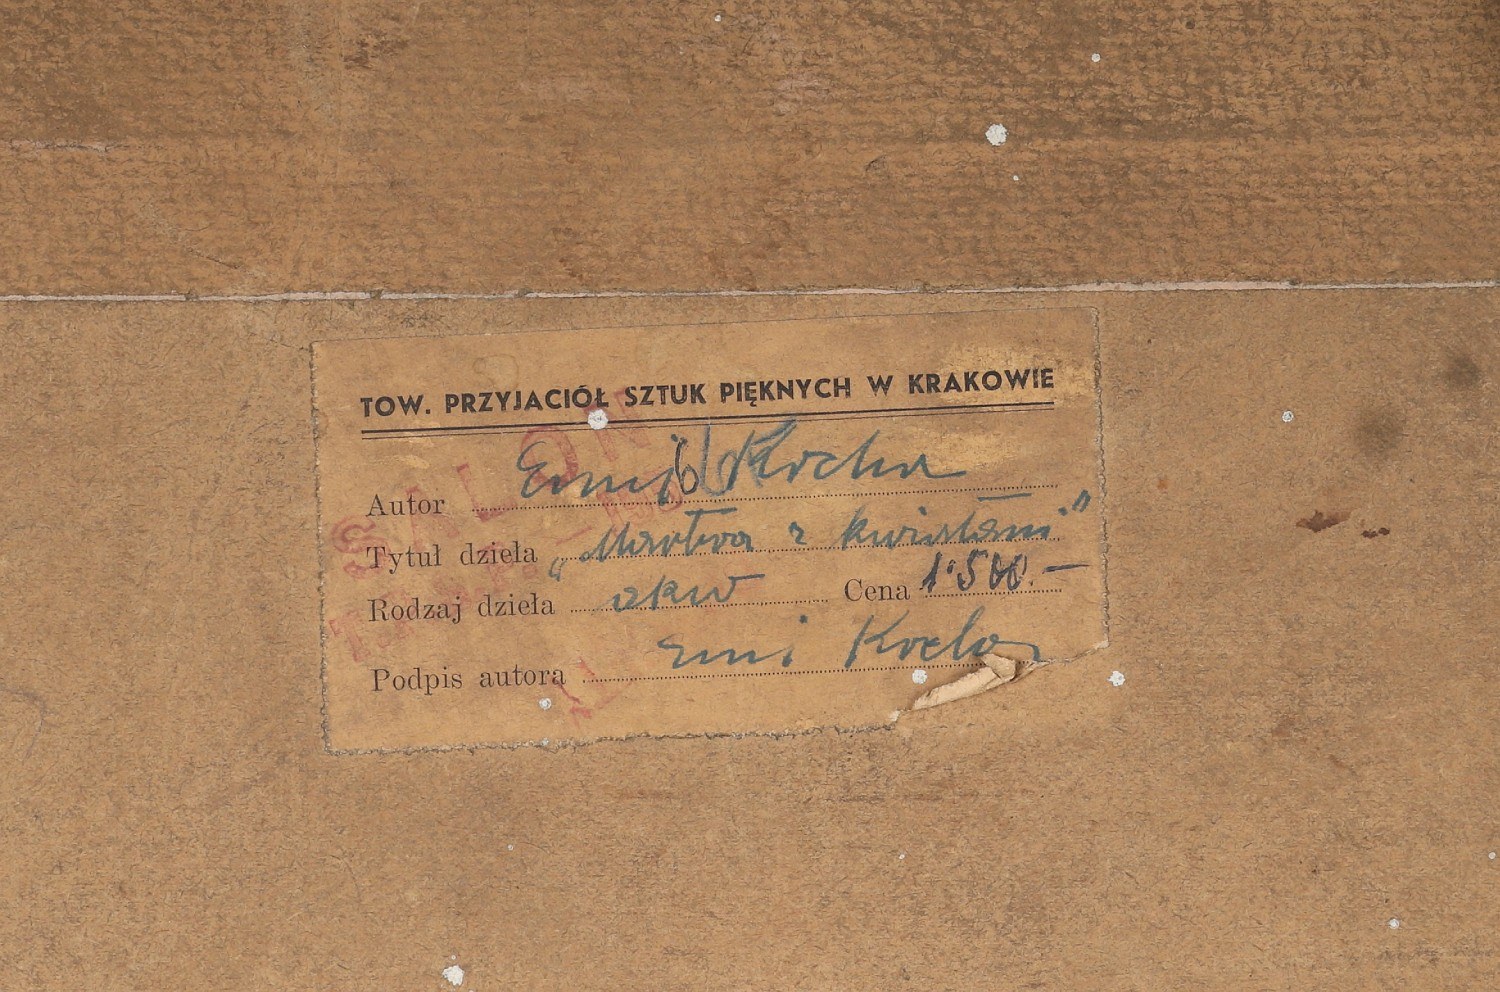 TOW. PRZYJACIÓŁ SZTUK PIĘKNYCH W KRAKOWIE
SALON
Autor Emil Krcha
Tytuł dzieła „Martwa z kwiatami"
Rodzaj dzieła akw Cena 1·500.—
Podpis autora Emil Krcha